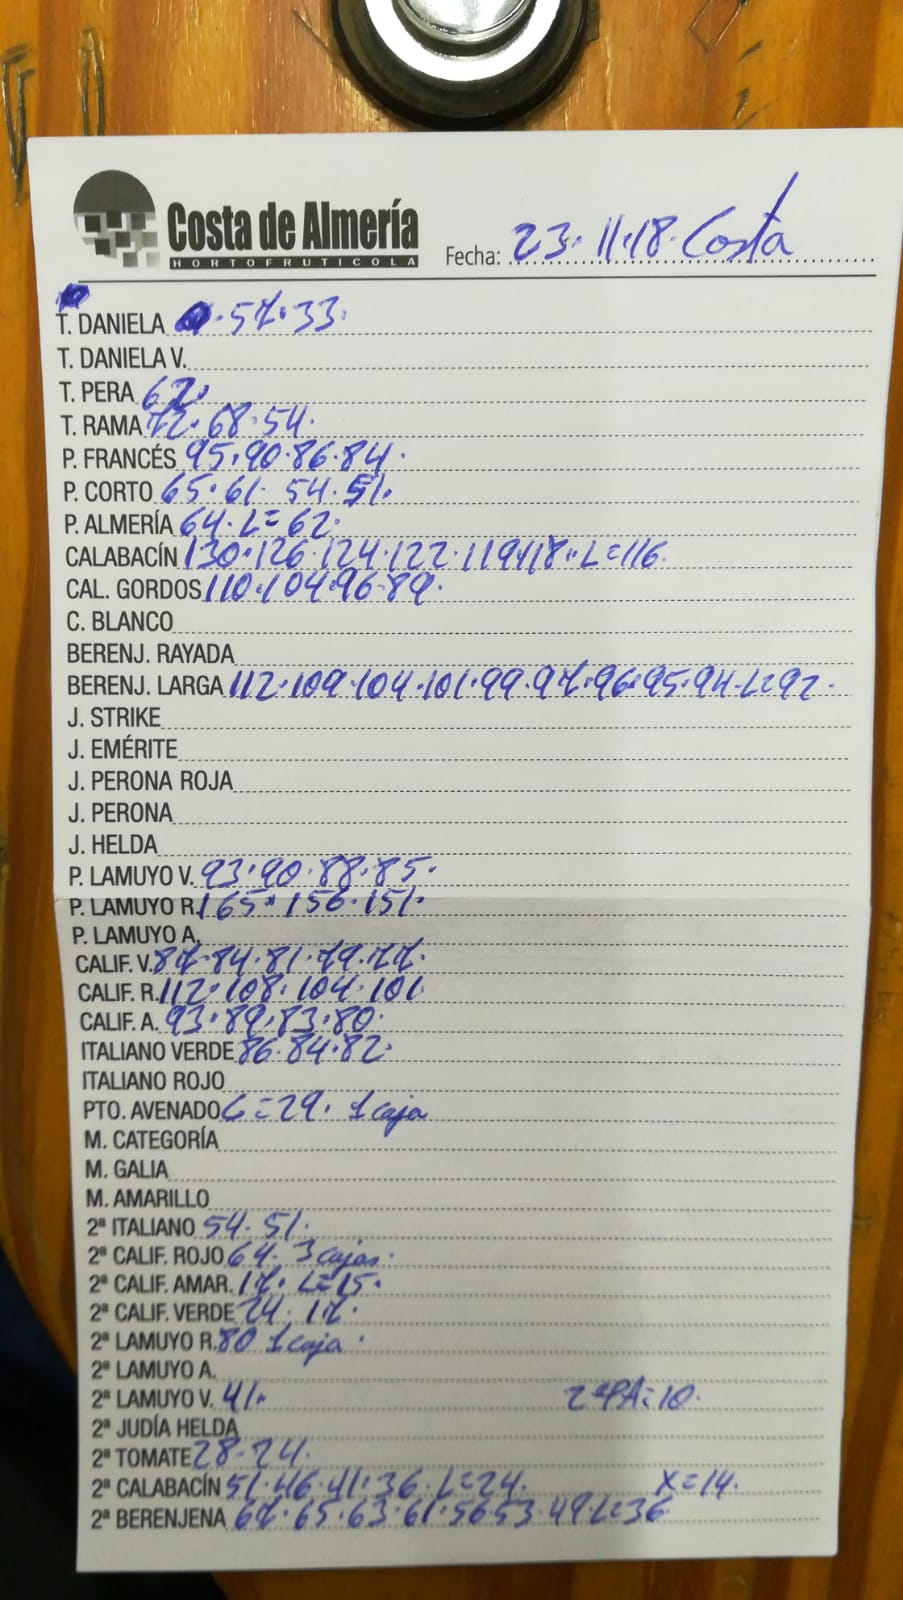 Costa de Almería
HORTOFRUTICOLA
Fecha: 23·11·18· Costa
T. DANIELA ·57·33·
T. DANIELA V.
T. PERA 62·
T. RAMA 72·68·54·
P. FRANCÉS 95·90·86·84·
P. CORTO 65·61·54·51·
P. ALMERÍA 64·L=62·
CALABACÍN 130·126·124·122·119·118·L=116·
CAL. GORDOS 110·104·96·89·
C. BLANCO
BERENJ. RAYADA
BERENJ. LARGA 112·109·104·101·99·97·96·95·94·L=92·
J. STRIKE
J. EMÉRITE
J. PERONA ROJA
J. PERONA
J. HELDA
P. LAMUYO V. 93·90·88·85·
P. LAMUYO R. 165·156·151·
P. LAMUYO A.
CALIF. V. 87·84·81·79·77·
CALIF. R. 112·108·104·101
CALIF. A. 93·89·83·80·
ITALIANO VERDE 86·84·82·
ITALIANO ROJO
PTO. AVENADO L=29· 1 caja
M. CATEGORÍA
M. GALIA
M. AMARILLO
2ª ITALIANO 54·51·
2ª CALIF. ROJO 64· 3 cajas·
2ª CALIF. AMAR. 17· L=15·
2ª CALIF. VERDE 24· 17·
2ª LAMUYO R. 80 1 caja·
2ª LAMUYO A.
2ª LAMUYO V. 41· 2ªPA=10·
2ª JUDÍA HELDA
2ª TOMATE 28-24·
2ª CALABACÍN 51·46·41·36·L=24· X=14·
2ª BERENJENA 67·65·63·61·56·53·49·L=36